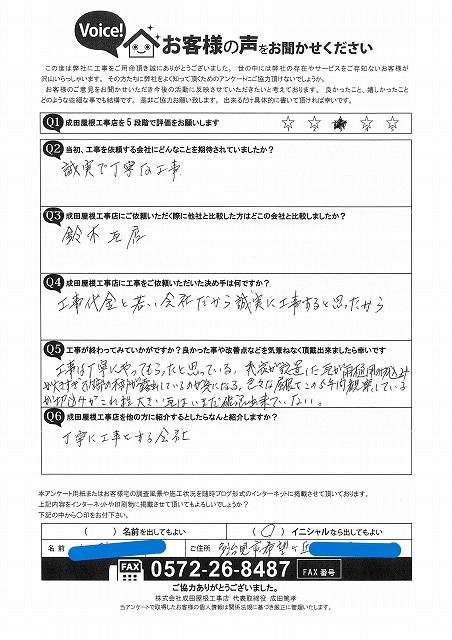 Voice!
お客様の声をお聞かせください
この度は弊社に工事をご用命頂き誠にありがとうございました。世の中には弊社の存在やサービスをご存知ないお客様が
沢山いらっしゃいます。その方たちに弊社をよく知って頂くためのアンケートにご協力頂けないでしょうか。
お客様のご意見をお聞かせいただき今後の活動に反映させていただきたいと考えております。良かったこと、嬉しかったこと
どのような些細な事でも結構です。是非ご協力お願い致します。出来るだけ具体的に書いて頂ければ幸いです。
Q1 成田屋根工事店を5段階で評価をお願いします ☆ ☆ ★ ☆ ☆
Q2 当初、工事を依頼する会社にどんなことを期待されていましたか?
誠実で丁寧な工事
Q3 成田屋根工事店にご依頼いただく際に他社と比較した方はどこの会社と比較しましたか?
鈴木瓦店
Q4 成田屋根工事店に工事をご依頼いただいた決め手は何ですか?
工事代金と若い会社だから誠実に工事すると思ったから
Q5 工事が終わってみていかがですか?良かった事や改善点などを気兼ねなく頂戴出来ましたら幸いです
工事は丁寧にやってもらったと思っている。
が大きすぎ
が露出しているのが気になる。色々な屋根をこの5年間観察している
が切込みがこれ程大きい瓦はいまだ確認出来ていない。
Q6 成田屋根工事店を他の方に紹介するとしたらなんと紹介しますか?
丁寧に工事をする会社
本アンケート用紙またはお客様宅の調査風景や施工状況を随時ブログ形式のインターネットに掲載させて頂いております。
上記内容をインターネットや印刷物に掲載させて頂いてもよろしいでしょうか?
下記の中から〇印をお付下さい。
( ) 名前を出してもよい (〇) イニシャルなら出してもよい
名前 ご住所 多治見市希望ヶ丘
FAX 0572-26-8487 FAX番号
ご協力ありがとうございました。
株式会社成田屋根工事店 代表取締役 成田篤孝
当アンケートで取得したお客様の個人情報は関係法規に基づき厳正に管理いたします。